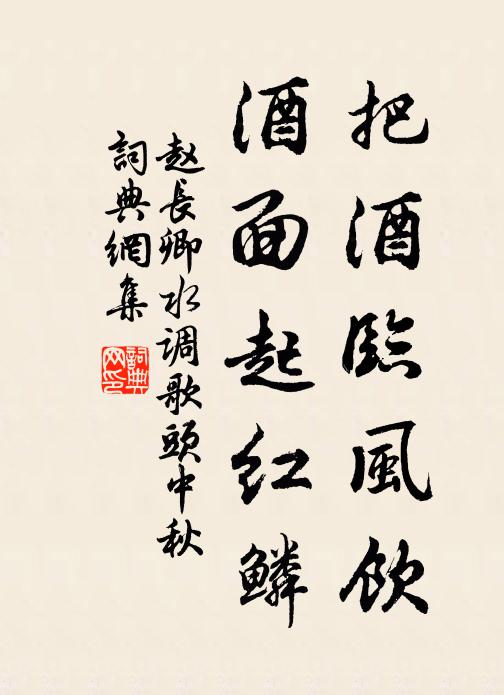 把酒臨風飲
酒面起红鳞
赵長卿水调歌頭中秋
詞典網集
詞典
网印